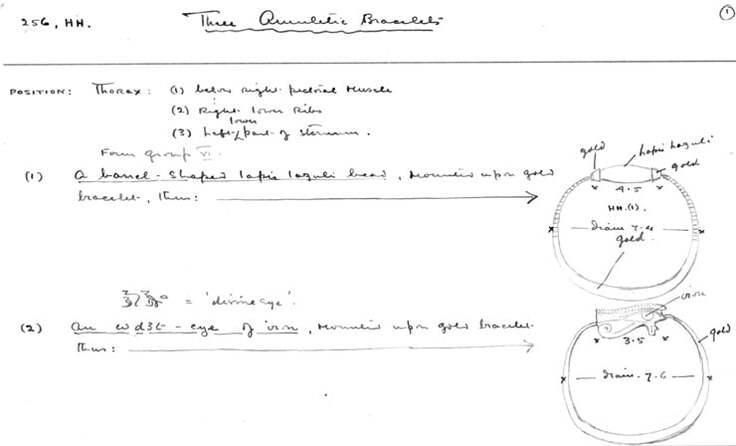 ①
256, HH. Three Amuletic Bracelets
POSITION: Thorax: (1) below right pectoral muscle
(2) Right lower Ribs
lower
(3) part of sternum.
Form group VI.
(1) A barrel-shaped lapis lazuli bead, mounted upon gold
bracelet, thus:
gold
lapis lazuli
gold
4.5
HH.(1).
diam 7.4
gold.
= 'divine eye'.
(2) An wd3t-eye of iron, mounted upon gold bracelet
thus:
iron
gold
3.5
diam. 7.6